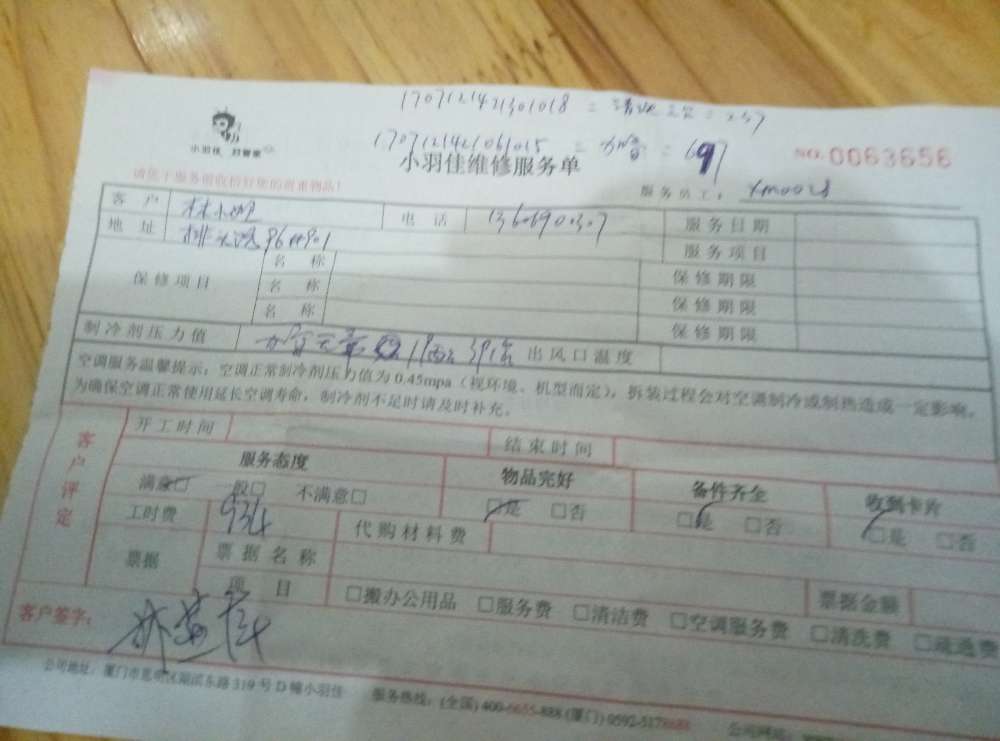 1707121421301018 = 清洗三台 = 237
1707121421061015 = 加管 = 697
小羽佳 好管家
小羽佳维修服务单
NO. 0063656
请您予服务前收拾好您的贵重物品!
服务员工: xm0028
客户 电话 13606900307 服务日期
地址 服务项目
保修项目 名称 保修期限
名称 保修期限
名称 保修期限
制冷剂压力值 出风口温度
空调服务温馨提示:空调正常制冷剂压力值为0.45mpa(视环境、机型而定),拆装过程会对空调制冷或制热造成一定影响。
为确保空调正常使用延长空调寿命,制冷剂不足时请及时补充。
客户评定
开工时间 结束时间
服务态度 物品完好 备件齐全 收到卡片
满意□ 一般□ 不满意□ □是 □否 □是 □否 □是 □否
工时费 934 代购材料费
票据 票据名称 票据金额
项目 □搬办公用品 □服务费 □清洁费 □空调服务费 □清洗费 □疏通费
客户签字:
公司地址:厦门市思明区湖滨东路319号D幢小羽佳 服务热线:(全国)400-6655-888 (厦门)0592-5178688